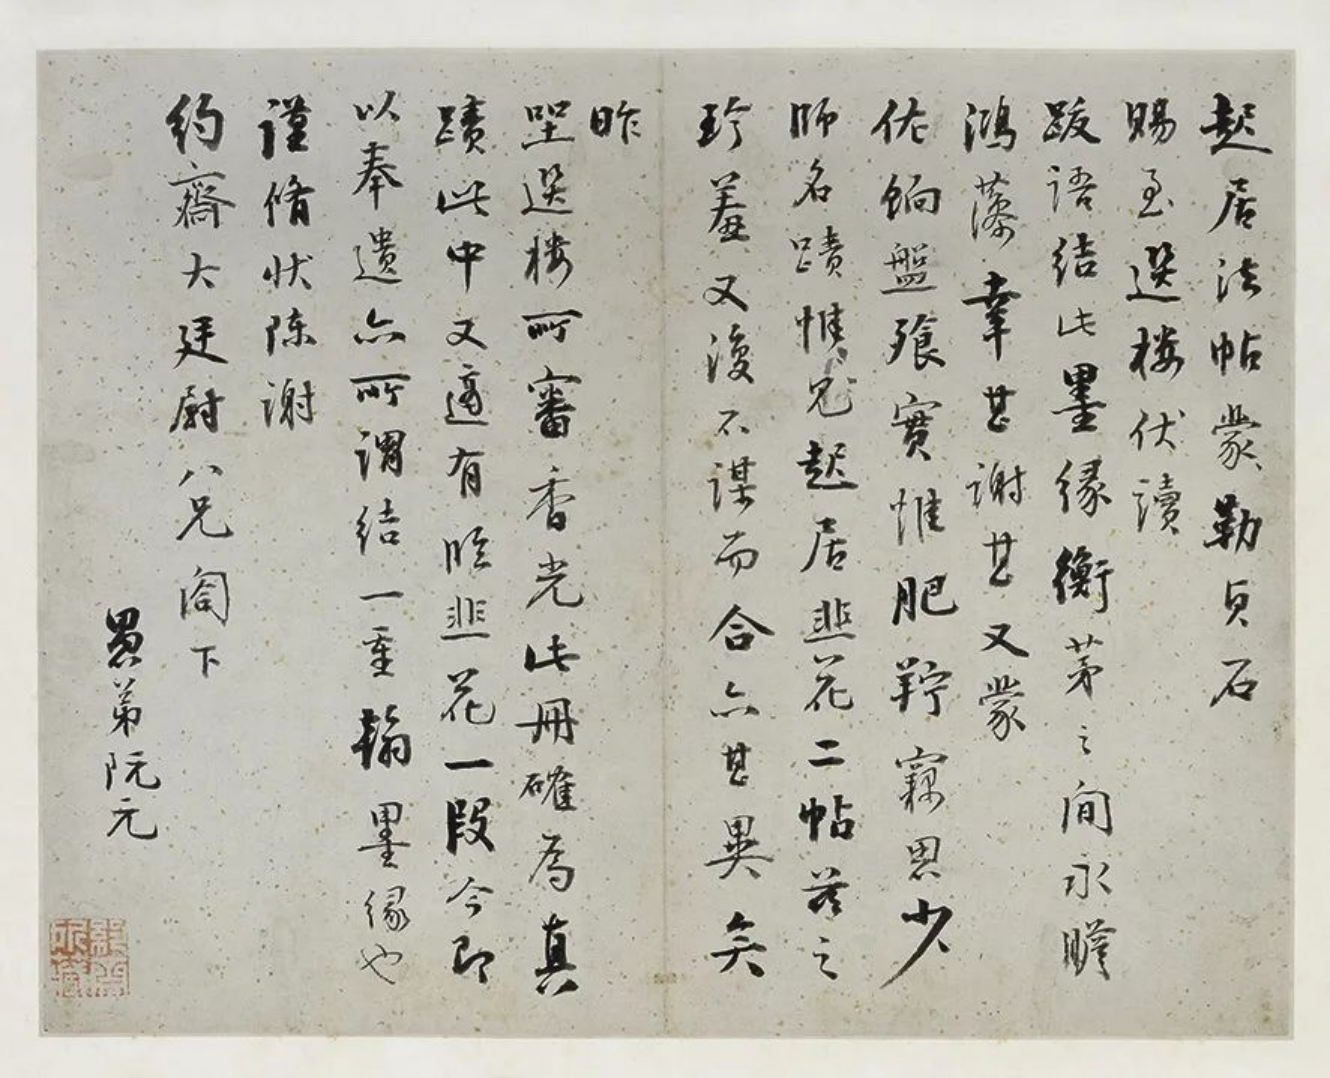 起居法帖蒙勒貞石
賜至選樓伏讀
跋語結此墨緣衡茅之間永賸
鴻藻幸甚謝甚又蒙
佐餉盤飱實惟肥羜竊思少
師名蹟惟見起居韭花二帖茗之
珍羞又復不謀而合亦甚異矣
昨
坐選樓所審香光此冊確為真
蹟此中又適有臨韭花一段今即
以奉遺亦所謂結一重翰墨緣也
謹脩狀陳謝
約齋大廷尉八兄閤下
愚弟阮元